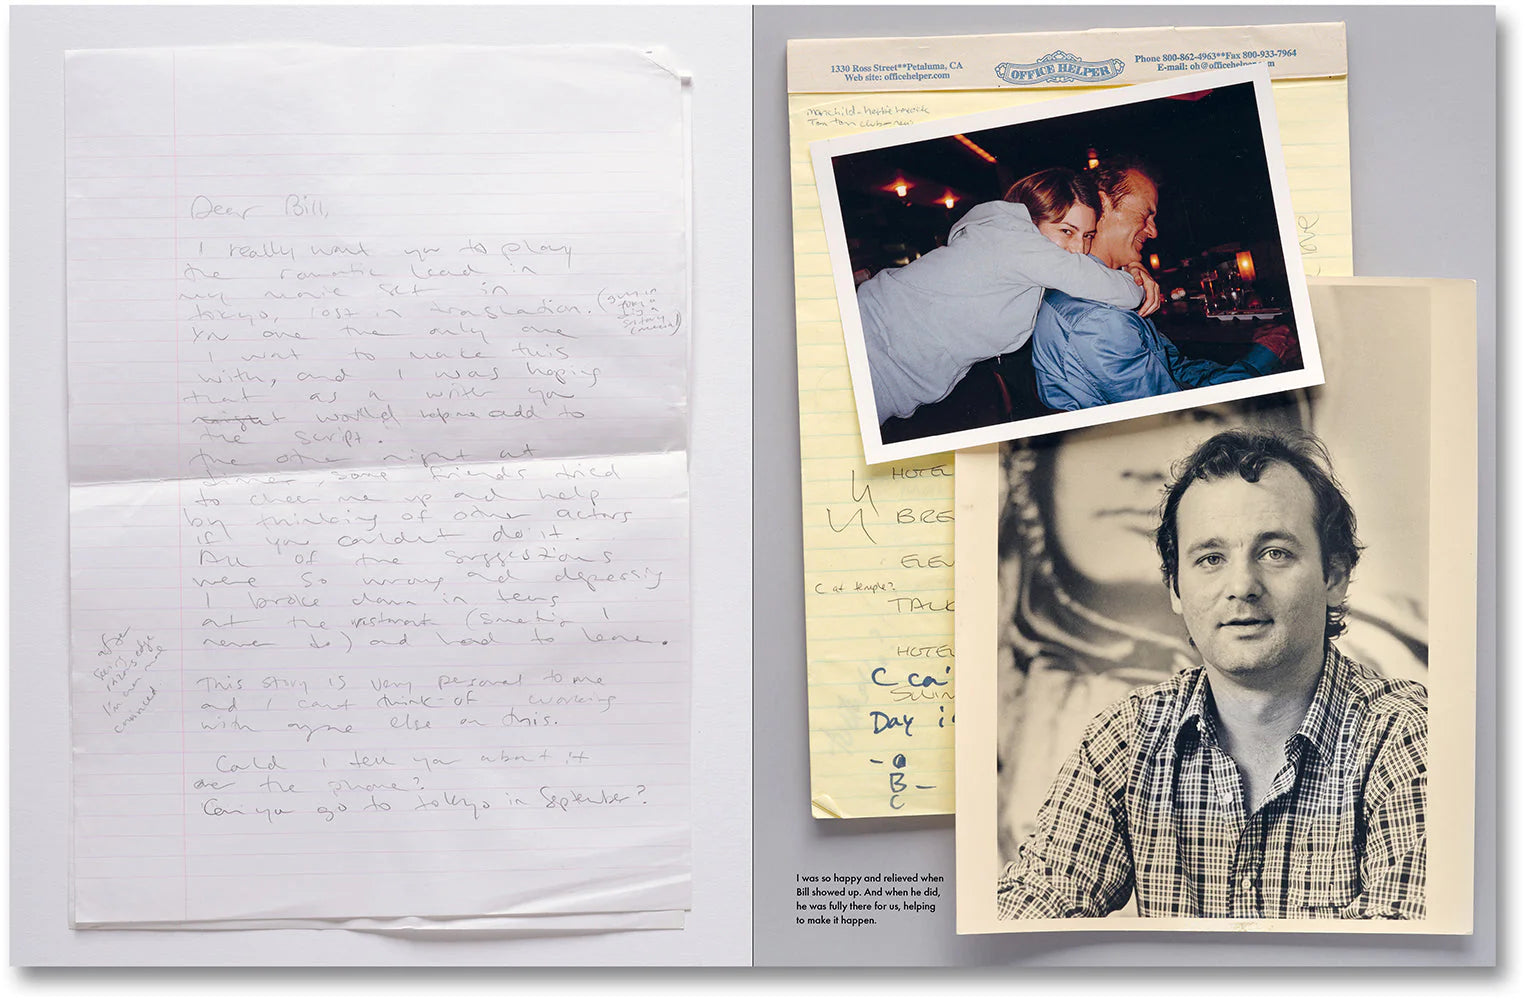 Dear Bill,
I really want you to play
the romantic lead in
my movie set in
tokyo, lost in translation.
You are the only one
I want to make this
with, and I was hoping
that as a writer you
might would help me add to
the script.
the other night at
dinner, some friends tried
to cheer me up and help
by thinking of other actors
if you couldn't do it.
All of the suggestions
were so wrong and depressing
I broke down in tears
at the restaurant (Something I
never do) and had to leave.
after
seeing
razors edge
I'm even more
convinced.
This story is very personal to me
and I can't think of working
with anyone else on this.
Could I tell you about it
over the phone?
Can you go to tokyo in September?
1330 Ross Street**Petaluma, CA
Web site: officehelper.com
OFFICE HELPER
Phone 800-862-4963**Fax 800-933-7964
E-mail: oh@officehelper.com
manchild - herbie hancock
Tom tom club
HOTEL
BRE
ELEV
C at temple?
TALK
HOTEL
C ca'
SWIM
Day i
- a
B -
C
I was so happy and relieved when
Bill showed up. And when he did,
he was fully there for us, helping
to make it happen.